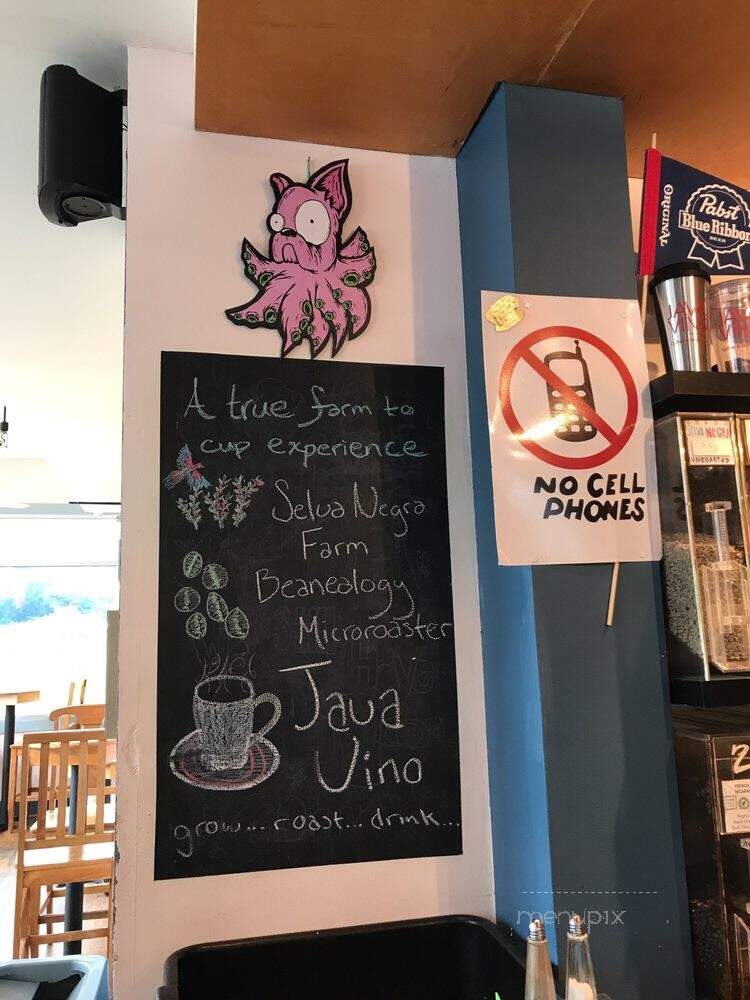 A true farm to
cup experience
Selva Negra
Farm
Beanealogy
Microroaster
Java
Vino
grow... roast... drink...
NO CELL
PHONES
ORIGINAL
Pabst
Blue Ribbon
BEER
JAVA
VINO
SELVA NEGRA
UNROASTED
menupix